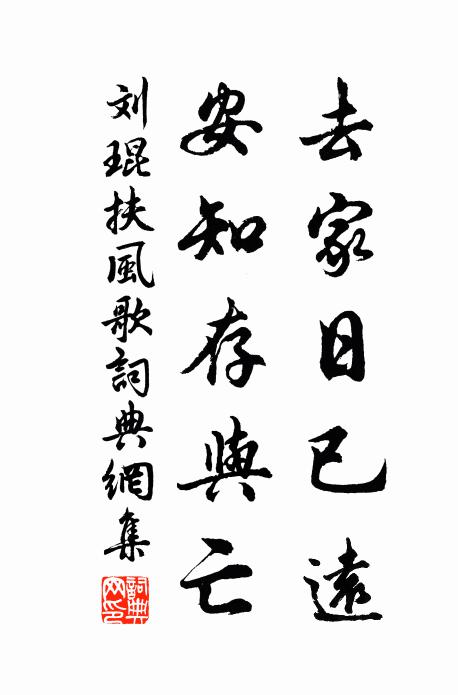 去家日已遠
安知存與亡
刘琨扶風歌詞典網集
詞典
网印